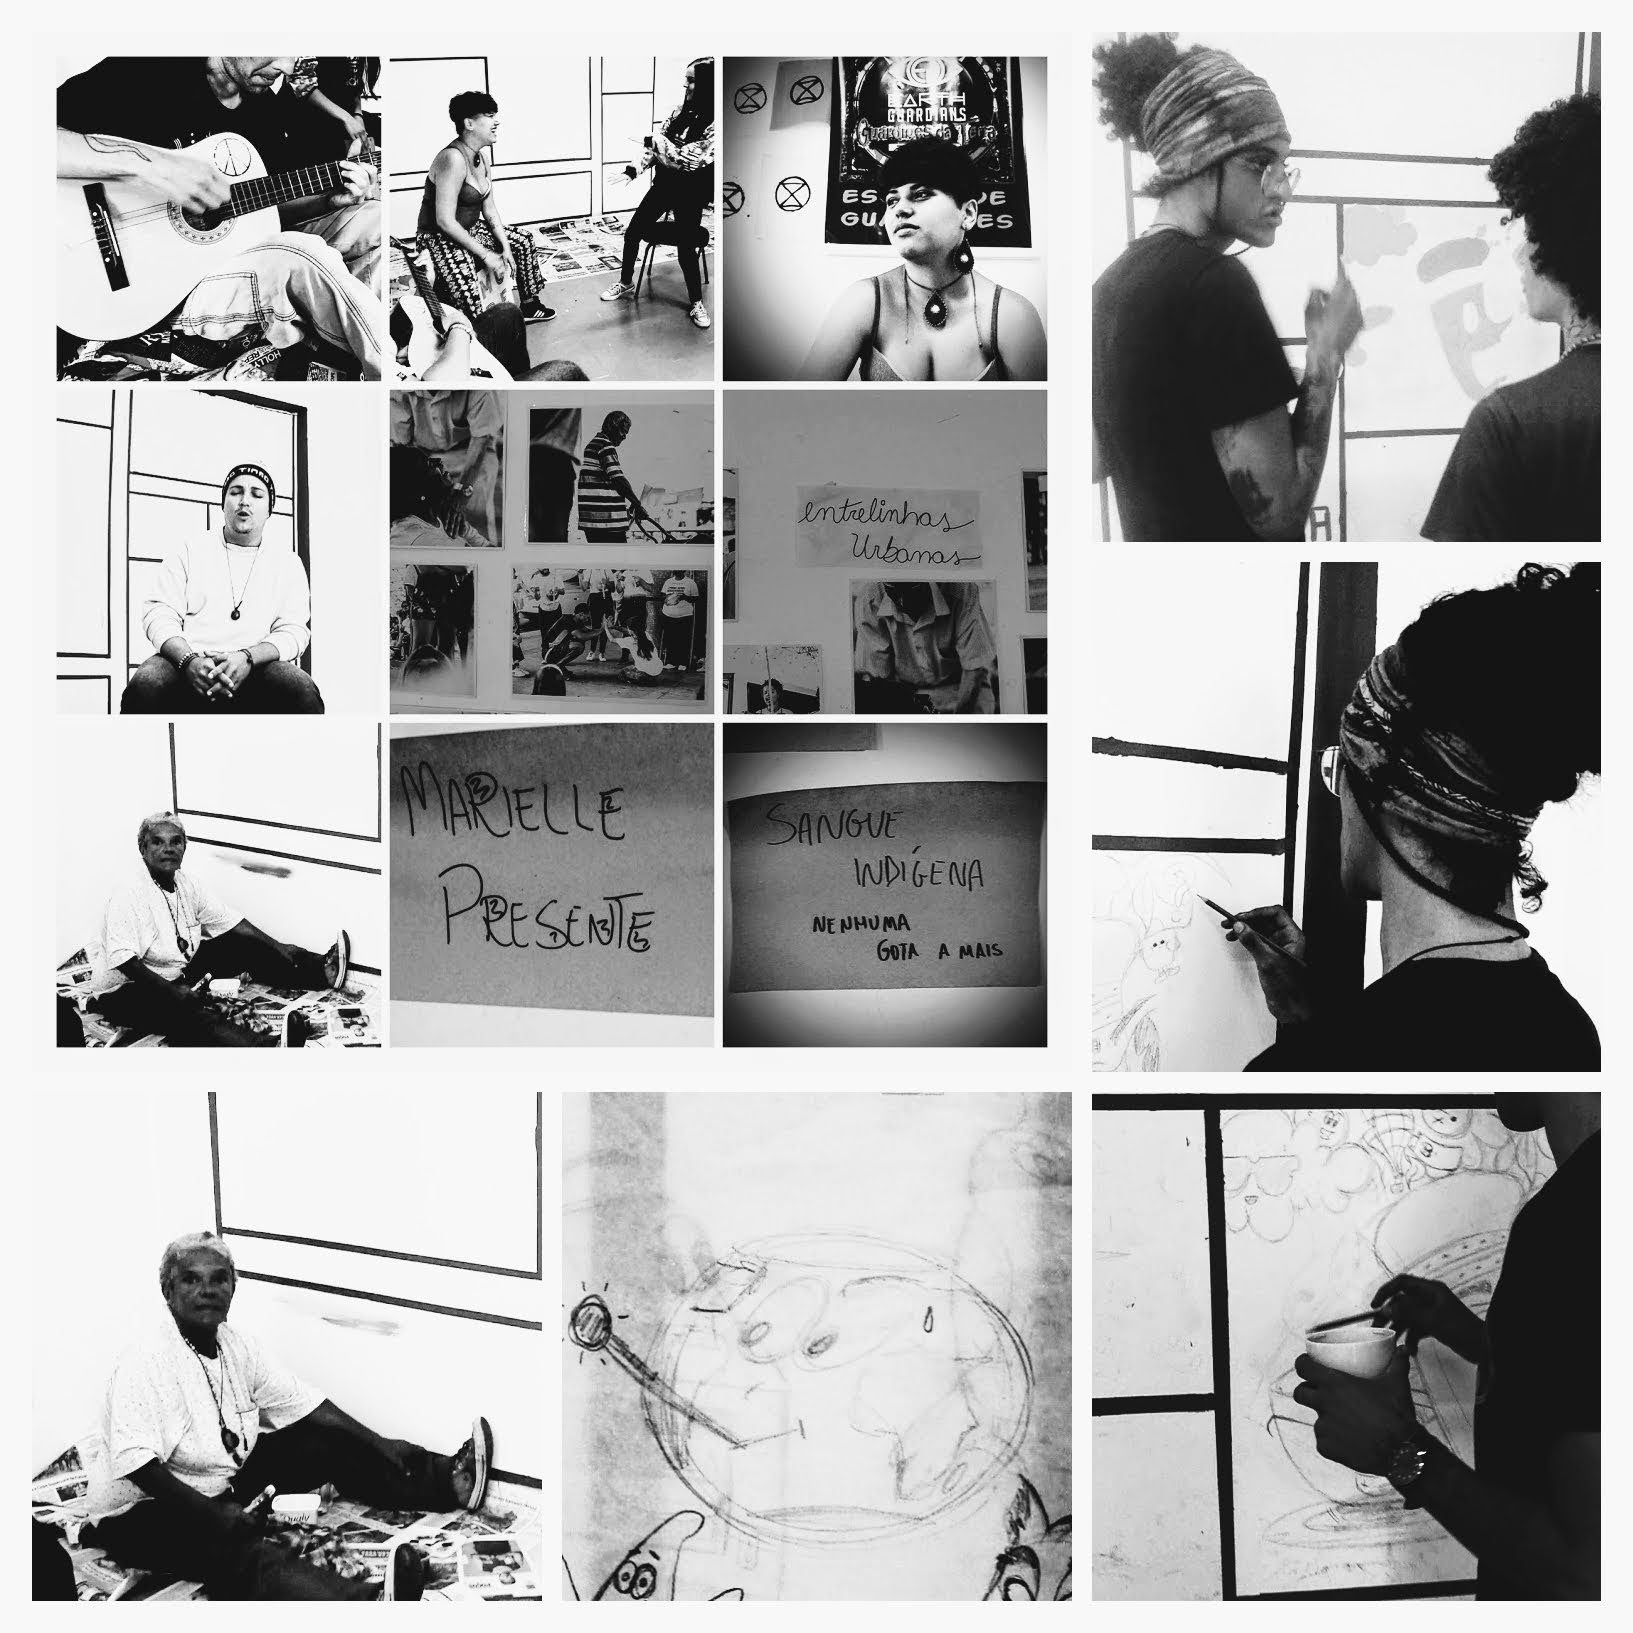 EARTH
GUARDIANS
Guardiões da Terra
entrelinhas
Urbanas
MARIELLE
PRESENTE
SANGUE
INDÍGENA
NENHUMA
GOTA A MAIS
Qualy